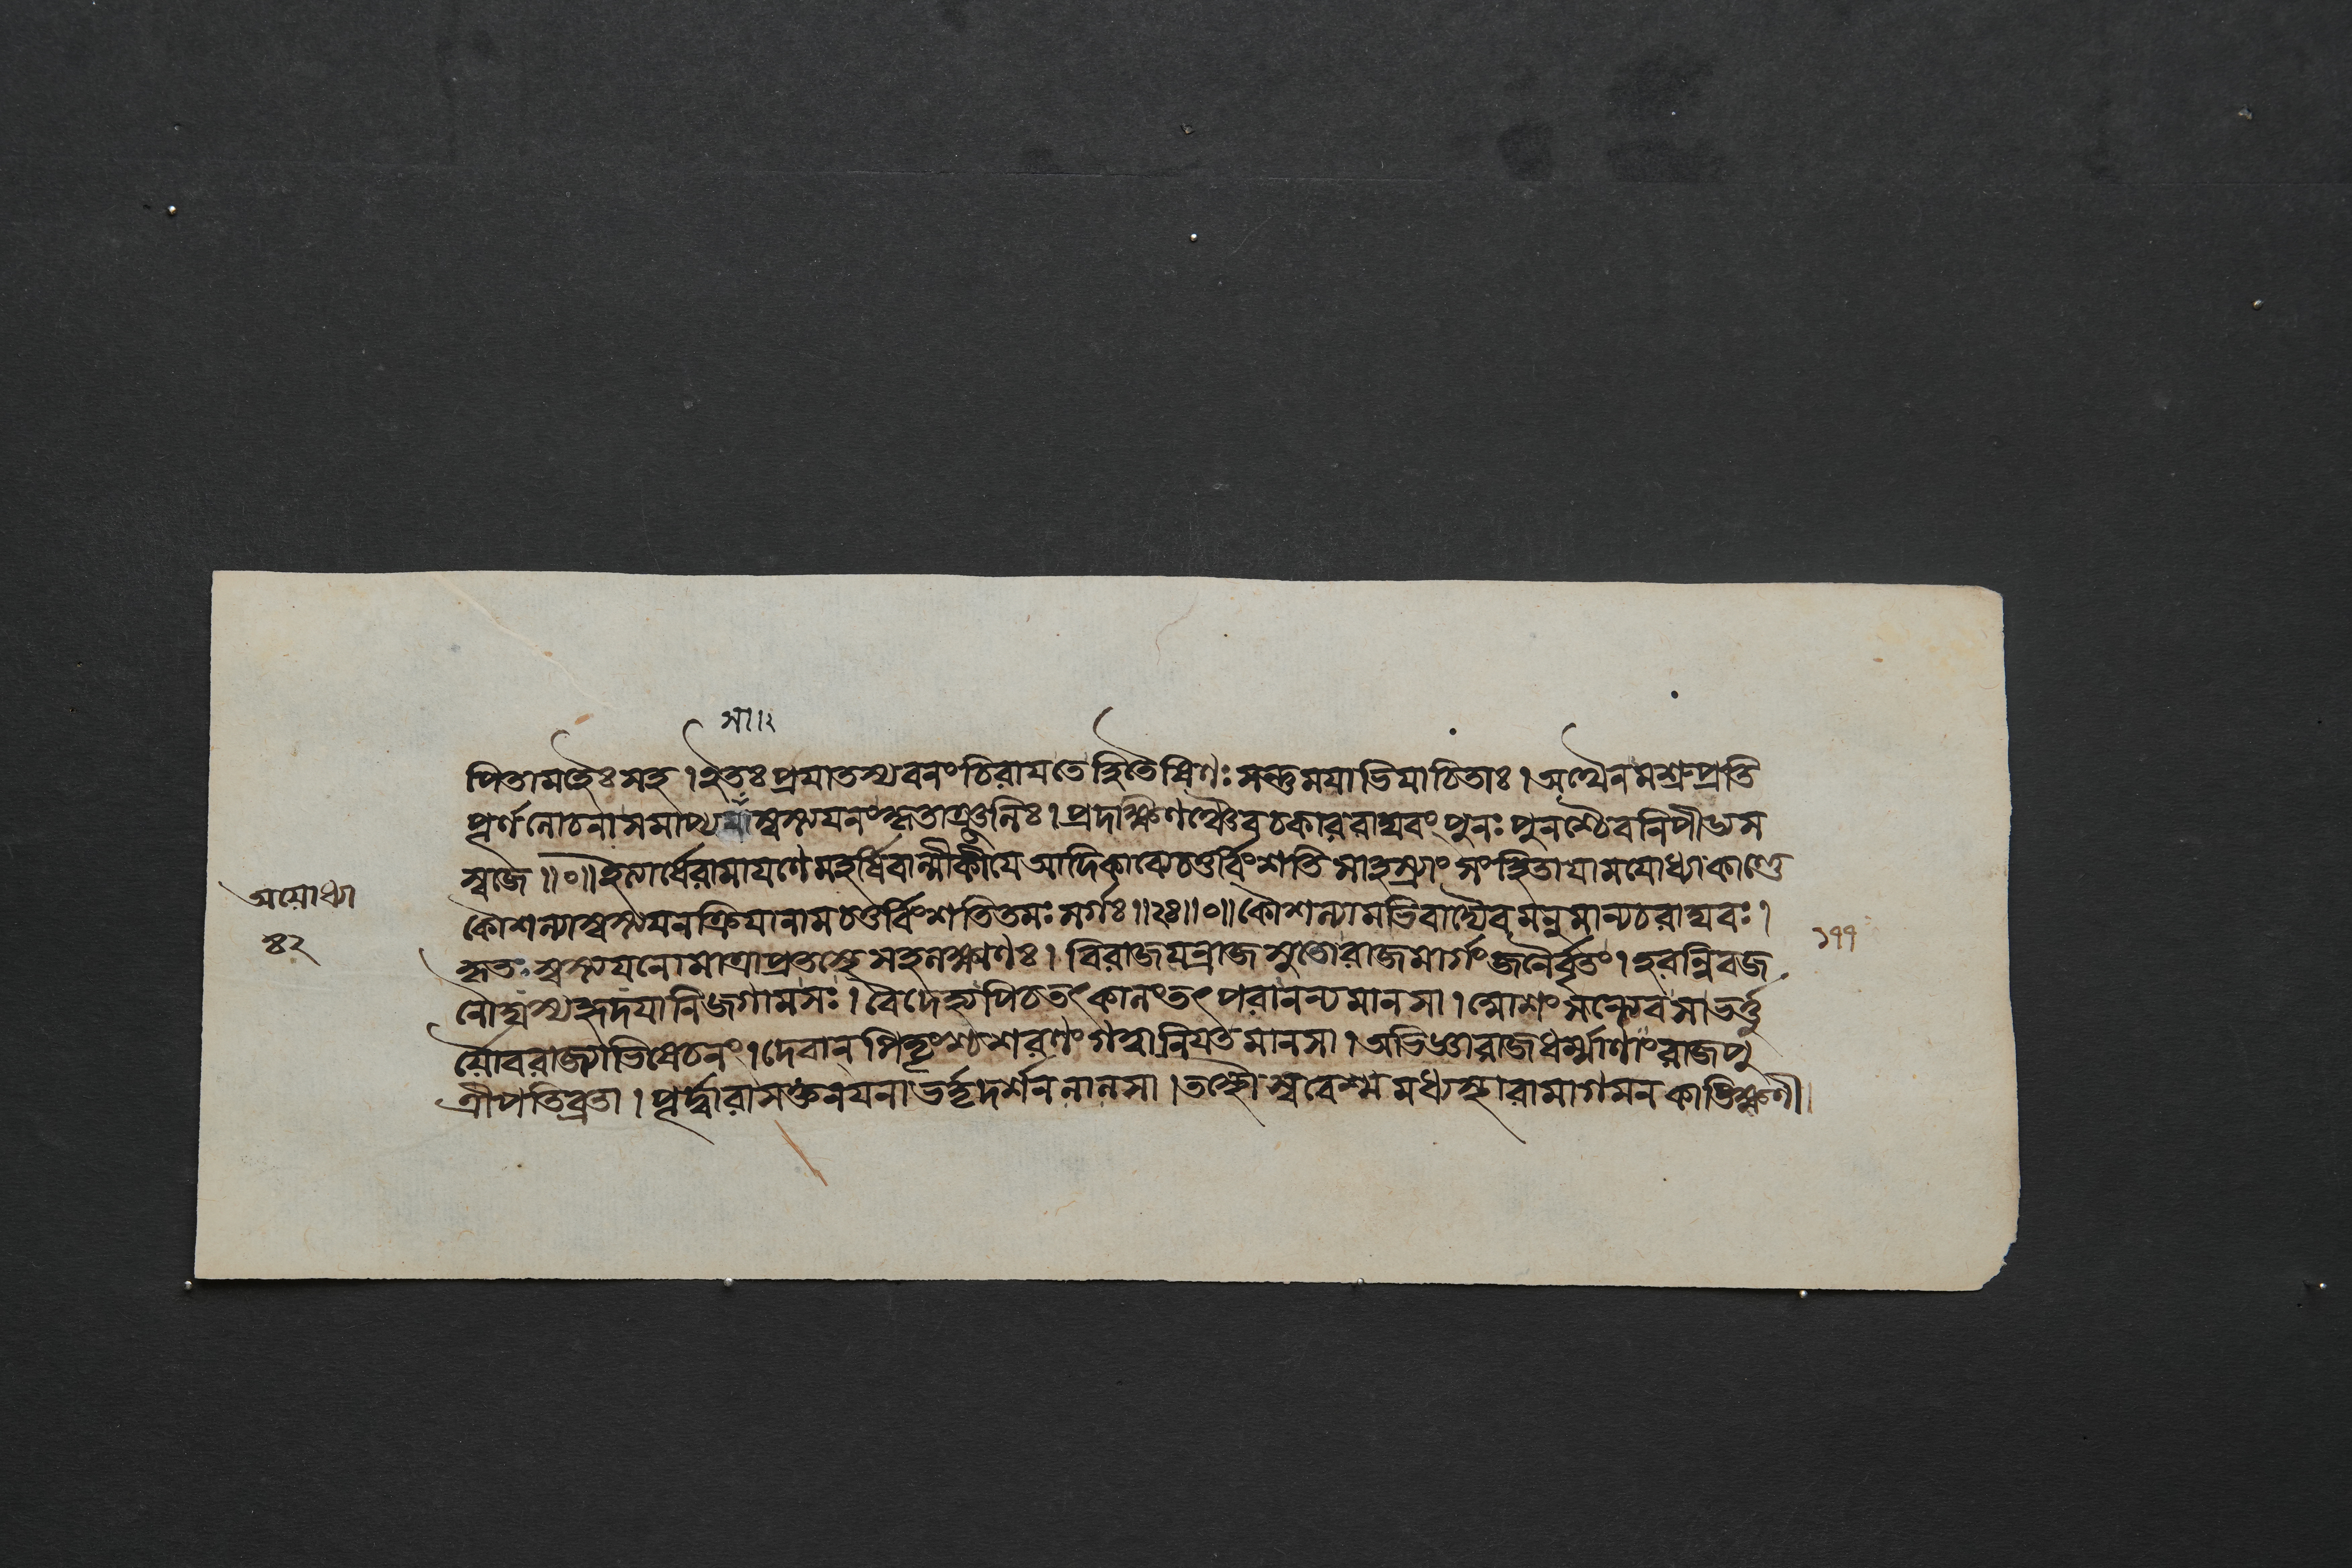 সা॥২
পিতামহৈঃ সহ । ইতঃ প্রযাতস্য বনং চিরায তে হিতৈষিণঃ সন্তু মযাভিযাচিতাঃ । অথৈনমশ্রুপ্রতি
পূর্ণলোচনা সমাপ্য স্বস্ত্যযনং কৃতাঞ্জলিঃ । প্রদক্ষিণঞ্চৈব চকার রাঘবং পুনঃ পুনশ্চৈব নিপীড্য স
স্বজে ॥০॥ ইত্যার্ষে রামাযণে মহর্ষিবাল্মীকীযে আদিকাব্যে চতুর্ব্বিংশতিসাহস্র্যাং সংহিতাযামযোধ্যাকাণ্ডে
কৌশল্যাস্বস্ত্যযনক্রিযা নাম চতুর্ব্বিংশতিতমঃ সর্গঃ ॥২৪॥০॥ কৌশল্যামভিবাদ্যৈবমনুমান্য চ রাঘবঃ ।
কৃতঃ স্বস্ত্যযনো মাত্রা প্রতস্থে সহলক্ষ্মণঃ । বিরাজযন্ রাজসুতো রাজমার্গং জনৈর্বৃতং । হরন্নিব জ
নৌঘস্য হৃদযানি জগাম সঃ । বৈদেহ্যপি চ তৎকালং তৎপরানন্যমানসা । মোশং সন্ত্যেব সা ভর্ত্তু
র্য্যৌবরাজ্যাভিষেচনং । দেবান্ পিতৄংশ্চ শরণং গত্বা নিযতমানসা । অভিজ্ঞা রাজধর্ম্মাণাং রাজপু
ত্রী পতিব্রতা । পূর্দ্বারাসক্তনযনা ভর্তৃদর্শনলালসা । তস্থৌ স্ববেশ্মমধ্যস্থা রামাগমনকাঙ্ক্ষিণী
অযোধ্যা
৪২
১৭৭